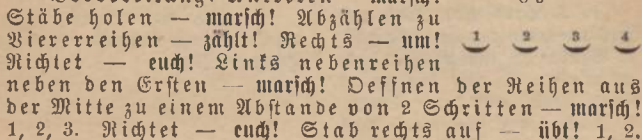 Stäbe holen — marsch! Abzählen zu
Viererreihen — zählt! Rechts — um!
1 2 3 4
Richtet — euch! Links nebenreihen
neben den Ersten — marsch! Oeffnen der Reihen aus
der Mitte zu einem Abstande von 2 Schritten — marsch!
1, 2, 3. Richtet — euch! Stab rechts auf — übt! 1, 2,